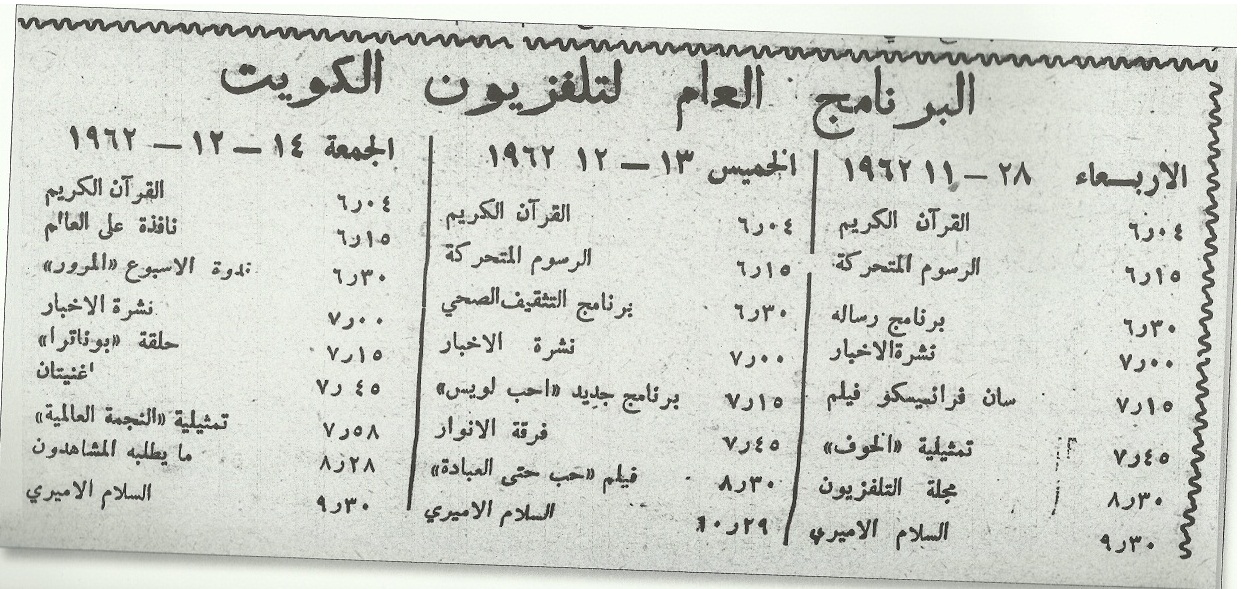 البرنامج العام لتلفزيون الكويت
الاربعاء ٢٨ – ١١ ١٩٦٢
٦٫٠٤ القرآن الكريم
٦٫١٥ الرسوم المتحركة
٦٫٣٠ برنامج رساله
٧٫٠٠ نشرة الاخبار
٧٫١٥ سان فرانسيسكو فيلم
٧٫٤٥ تمثيلية «الخوف»
٨٫٣٠ مجلة التلفزيون
٩٫٣٠ السلام الاميري
الخميس ١٣ – ١٢ ١٩٦٢
٦٫٠٤ القرآن الكريم
٦٫١٥ الرسوم المتحركة
٦٫٣٠ برنامج التثقيف الصحي
٧٫٠٠ نشرة الاخبار
٧٫١٥ برنامج جديد «احب لويس»
٧٫٤٥ فرقة الانوار
٨٫٣٠ فيلم «حب حتى العبادة»
١٠٫٢٩ السلام الاميري
الجمعة ١٤ – ١٢ – ١٩٦٢
٦٫٠٤ القرآن الكريم
٦٫١٥ نافذة على العالم
٦٫٣٠ ندوة الاسبوع «المرور»
٧٫٠٠ نشرة الاخبار
٧٫١٥ حلقة «بوناتزا»
٧٫٤٥ اغنيتان
٧٫٥٨ تمثيلية «النجمة العالمية»
٨٫٢٨ ما يطلبه المشاهدون
٩٫٣٠ السلام الاميري